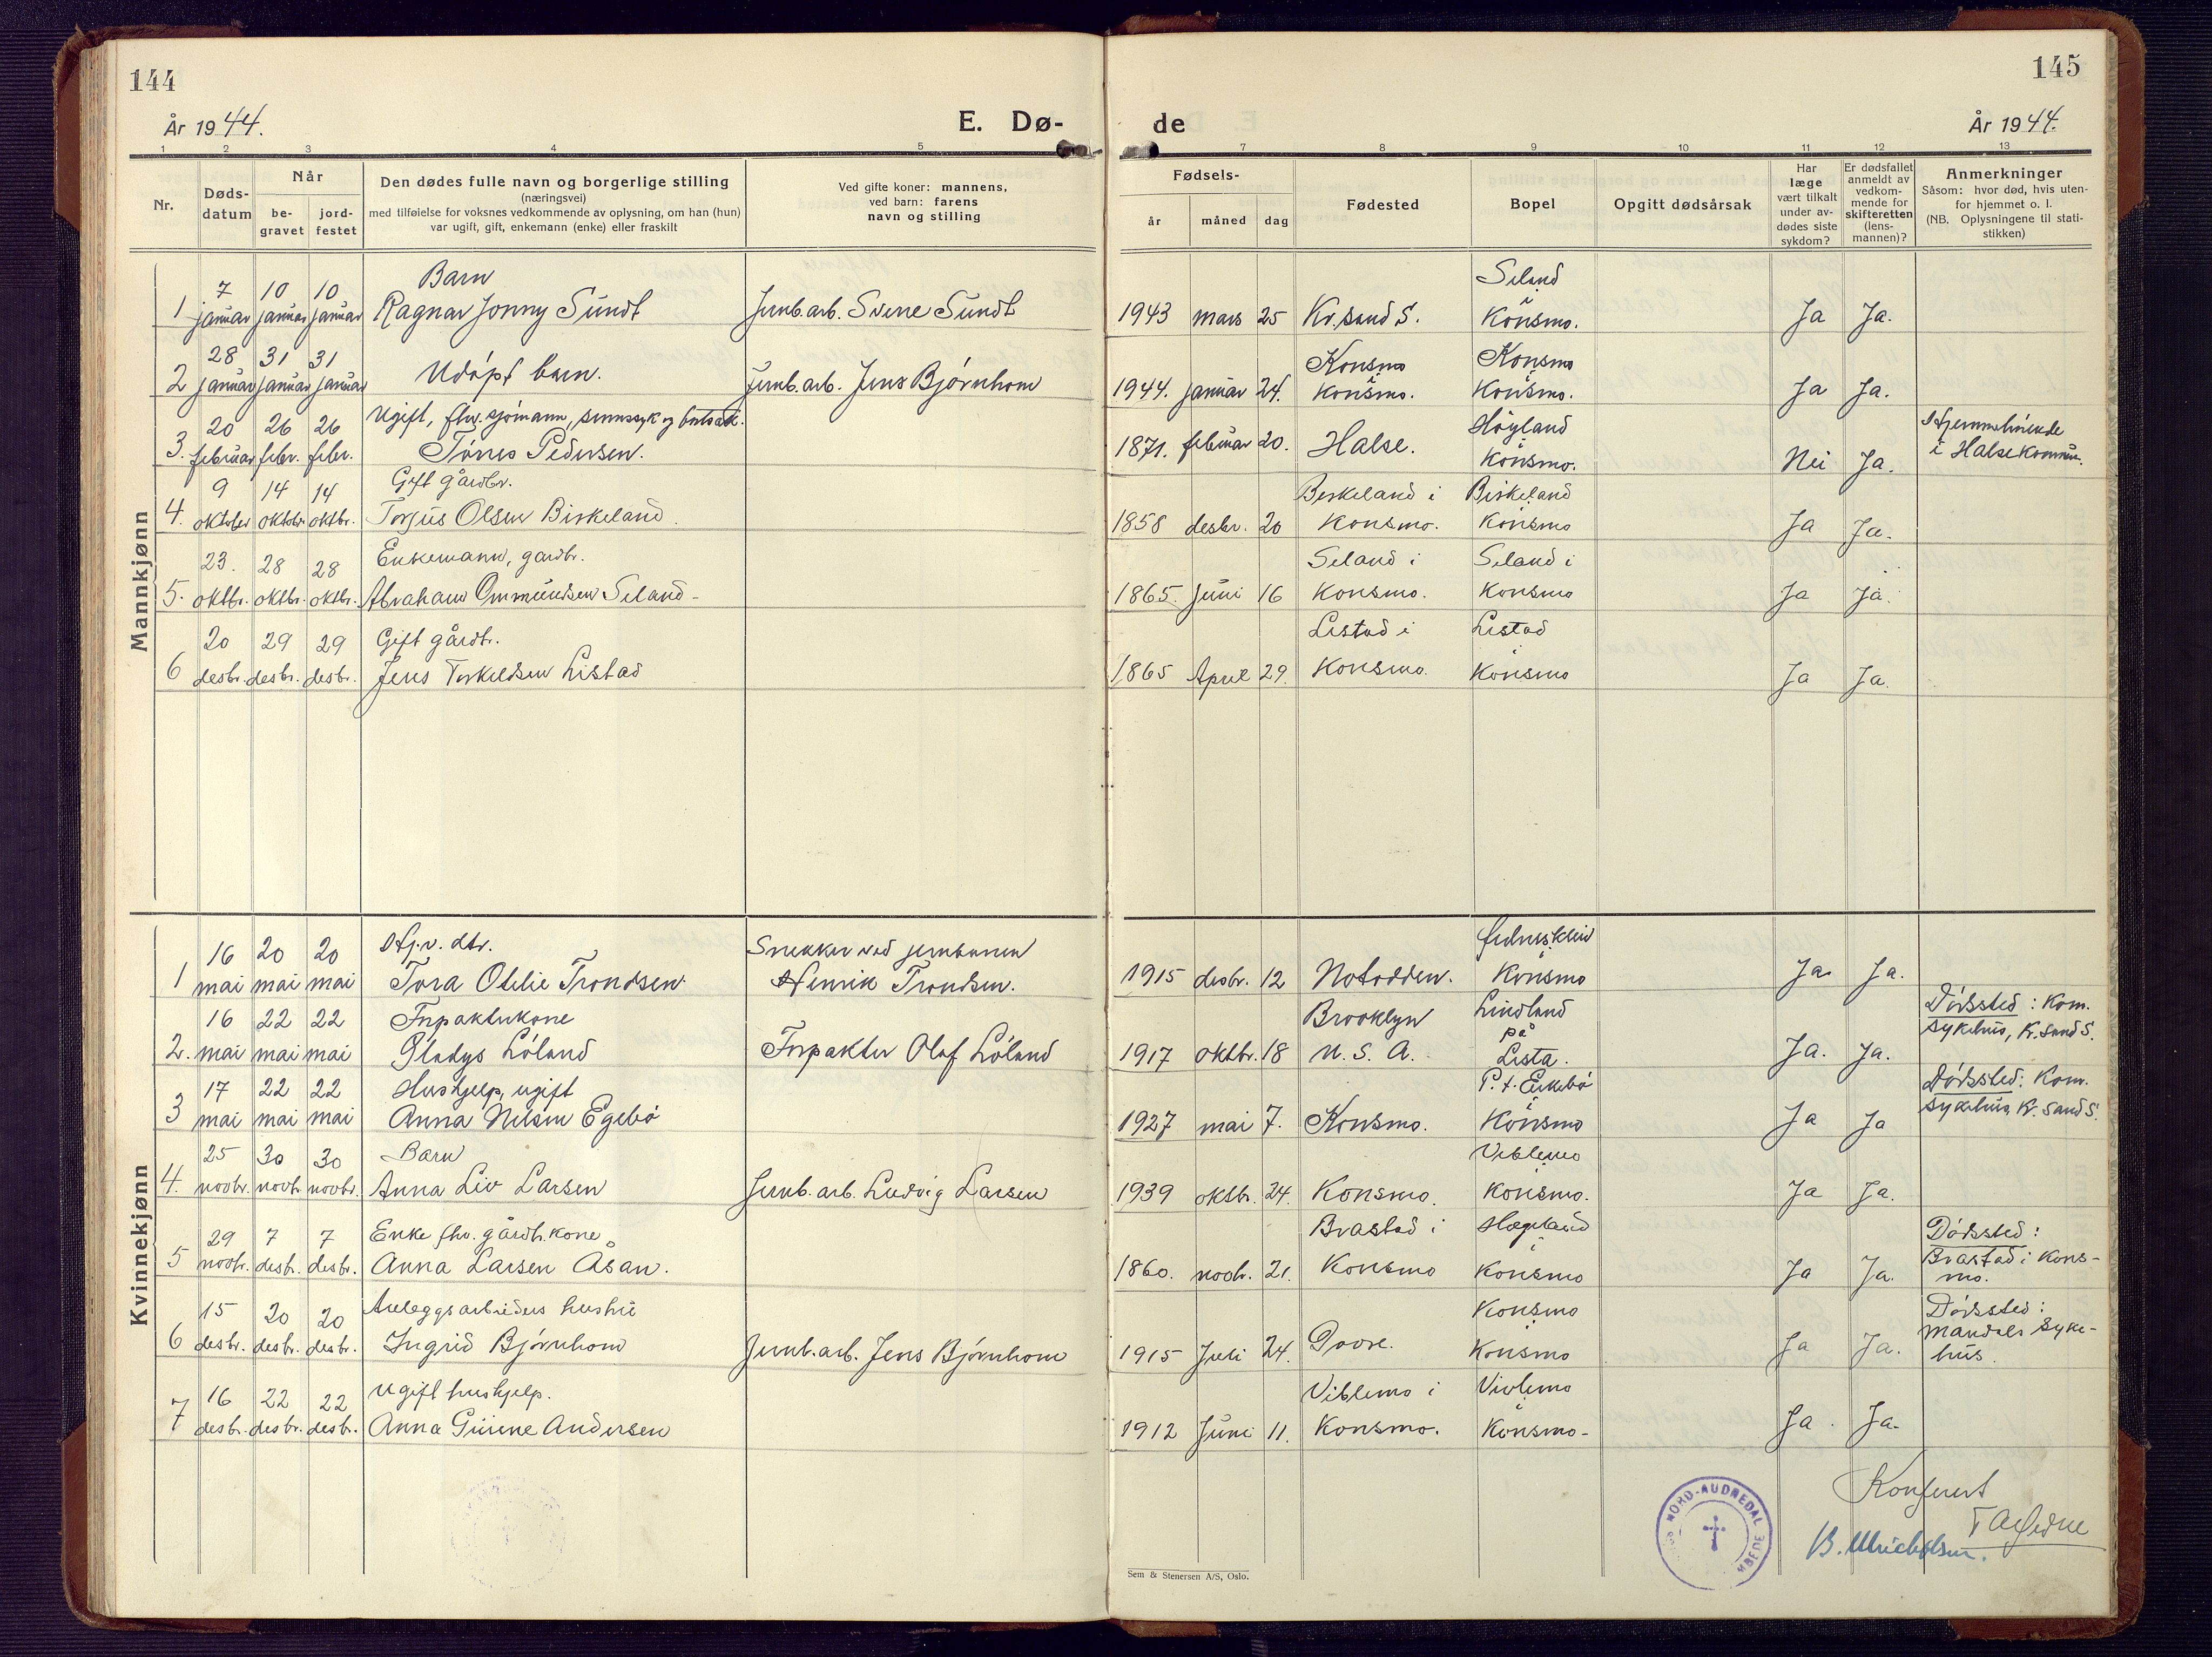 144
145
År 1944.
E. Dø-
de
År 1944.
1 2 3 4 5
7 8 9 10 11 12 13
Nr.
Døds-
datum
Når
be-
gravet
jord-
festet
Den dødes fulle navn og borgerlige stilling
(næringsvei)
med tilføielse for voksnes vedkommende av oplysning, om han (hun)
var ugift, gift, enkemann (enke) eller fraskilt
Ved gifte koner: mannens,
ved barn: farens
navn og stilling
Fødsels-
år
måned
dag
Fødested
Bopel
Opgitt dødsårsak
Har
læge
vært tilkalt
under av-
dødes siste
sykdom?
Er dødsfallet
anmeldt av
vedkom-
mende for
skifteretten
(lens-
mannen)?
Anmerkninger
Såsom: hvor død, hvis uten-
for hjemmet o. l.
(NB. Oplysningene til stati-
stikken)
Mannkjønn
7 10 10 Barn Seland
1 januar januar januar Ragnar Jonny Sundt Jernb.arb. Sverre Sundt 1943 mars 25 Kr.sand S. i Konsmo. Ja Ja.
28 31 31 Konsmo Konsmo
2 januar januar januar Udøpt barn. Jernb.arb. Jens Bjørnhom 1944. januar 24. i Konsmo. i Konsmo. Ja Ja.
20 26 26 Ugift, fhv. sjømann, sinnssyk og Høyland Hjemmehørende
3. februar febr. febr. Tønnes Pedersen. 1871. februar 20. Halse. i Konsmo. Nei Ja. i Halse kommune.
9 14 14 Gift gårdbr. Birkeland i Birkeland
4. oktober oktobr. oktbr. Torjus Olsen Birkeland. 1858 desbr. 20 Konsmo. i Konsmo Ja Ja.
23. 28 28 Enkemann, gardbr. Seland i Seland i
5. oktbr. oktbr. oktbr. Abraham Ommundsen Seland- 1865. juni 16 Konsmo. Konsmo Ja Ja.
20 29 29 Gift gårdbr. Listad i Listad
6 desbr. desbr. desbr. Jens Torkeldsen Listad 1865 April 29. Konsmo. i Konsmo Ja Ja.
Kvinnekjønn
16 20 20 Hj.v. dtr. Snekker ved jernbanen
1 mai mai mai Tora Otelie Trondsen Henrik Trondsen. 1915 desbr. 12 Notodden. i Konsmo Ja Ja.
16 22 22 Forpakterkone Brooklyn Lindland Dødssted: Kom.
2. mai mai mai Gladys Løland Forpakter Olaf Løland 1917 oktbr. 18 U. S. A. på Lista. Ja. Ja. sykehus, Kr.sand S.
17 22 22 Hushjelp, ugift P. t. Eikebø Dødssted: Kom.
3 mai mai mai Anna Nilsen Egebø 1927 mai 7. Konsmo. i Konsmo Ja Ja sykehus, Kr.sand S.
25 30 30 Barn Viblemo
4. novbr. novbr. novbr. Anna Liv Larsen Jernb.arb. Ludvig Larsen 1939 oktbr. 24. Konsmo. i Konsmo. Ja Ja.
29 7 7 Enke fhv. gårdbr.kone Brastad i Hægeland Dødssted:
5 novbr. desbr. desbr. Anna Larsen Åsan. 1860. novbr. 21. Konsmo i Konsmo Ja Ja. Brastad i Kons-
mo.
15 20 20 Anleggsarbeiders hustru Konsmo Dødssted:
6 desbr. desbr. desbr. Ingrid Bjørnhom Jernb.arb. Jens Bjørnhom 1915 Juli 24. Dovre. i Konsmo Ja Ja. Mandals syke-
hus.
16 22 22 Ugift hushjelp. Viblemo i Viblemo
7 desbr. desbr. desbr. Anna Gurine Andersen 1912 Juni 11. Konsmo. i Konsmo- Ja. Ja.
NORD-AUDNEDAL
Konferert
B. Ulrichsen.
Sem & Stenersen A/S, Oslo.